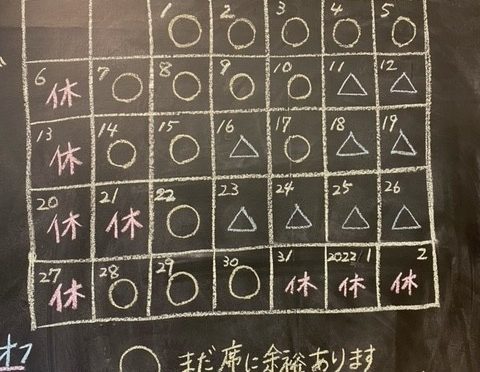 1 ○ 2 ○ 3 ○ 4 ○ 5 ○
6 休 7 ○ 8 ○ 9 ○ 10 ○ 11 △ 12 △
13 休 14 ○ 15 ○ 16 △ 17 ○ 18 △ 19 △
20 休 21 休 22 ○ 23 △ 24 △ 25 △ 26 △
27 休 28 ○ 29 ○ 30 ○ 31 休 2022 1 休 2 休
○ まだ席に余裕あります